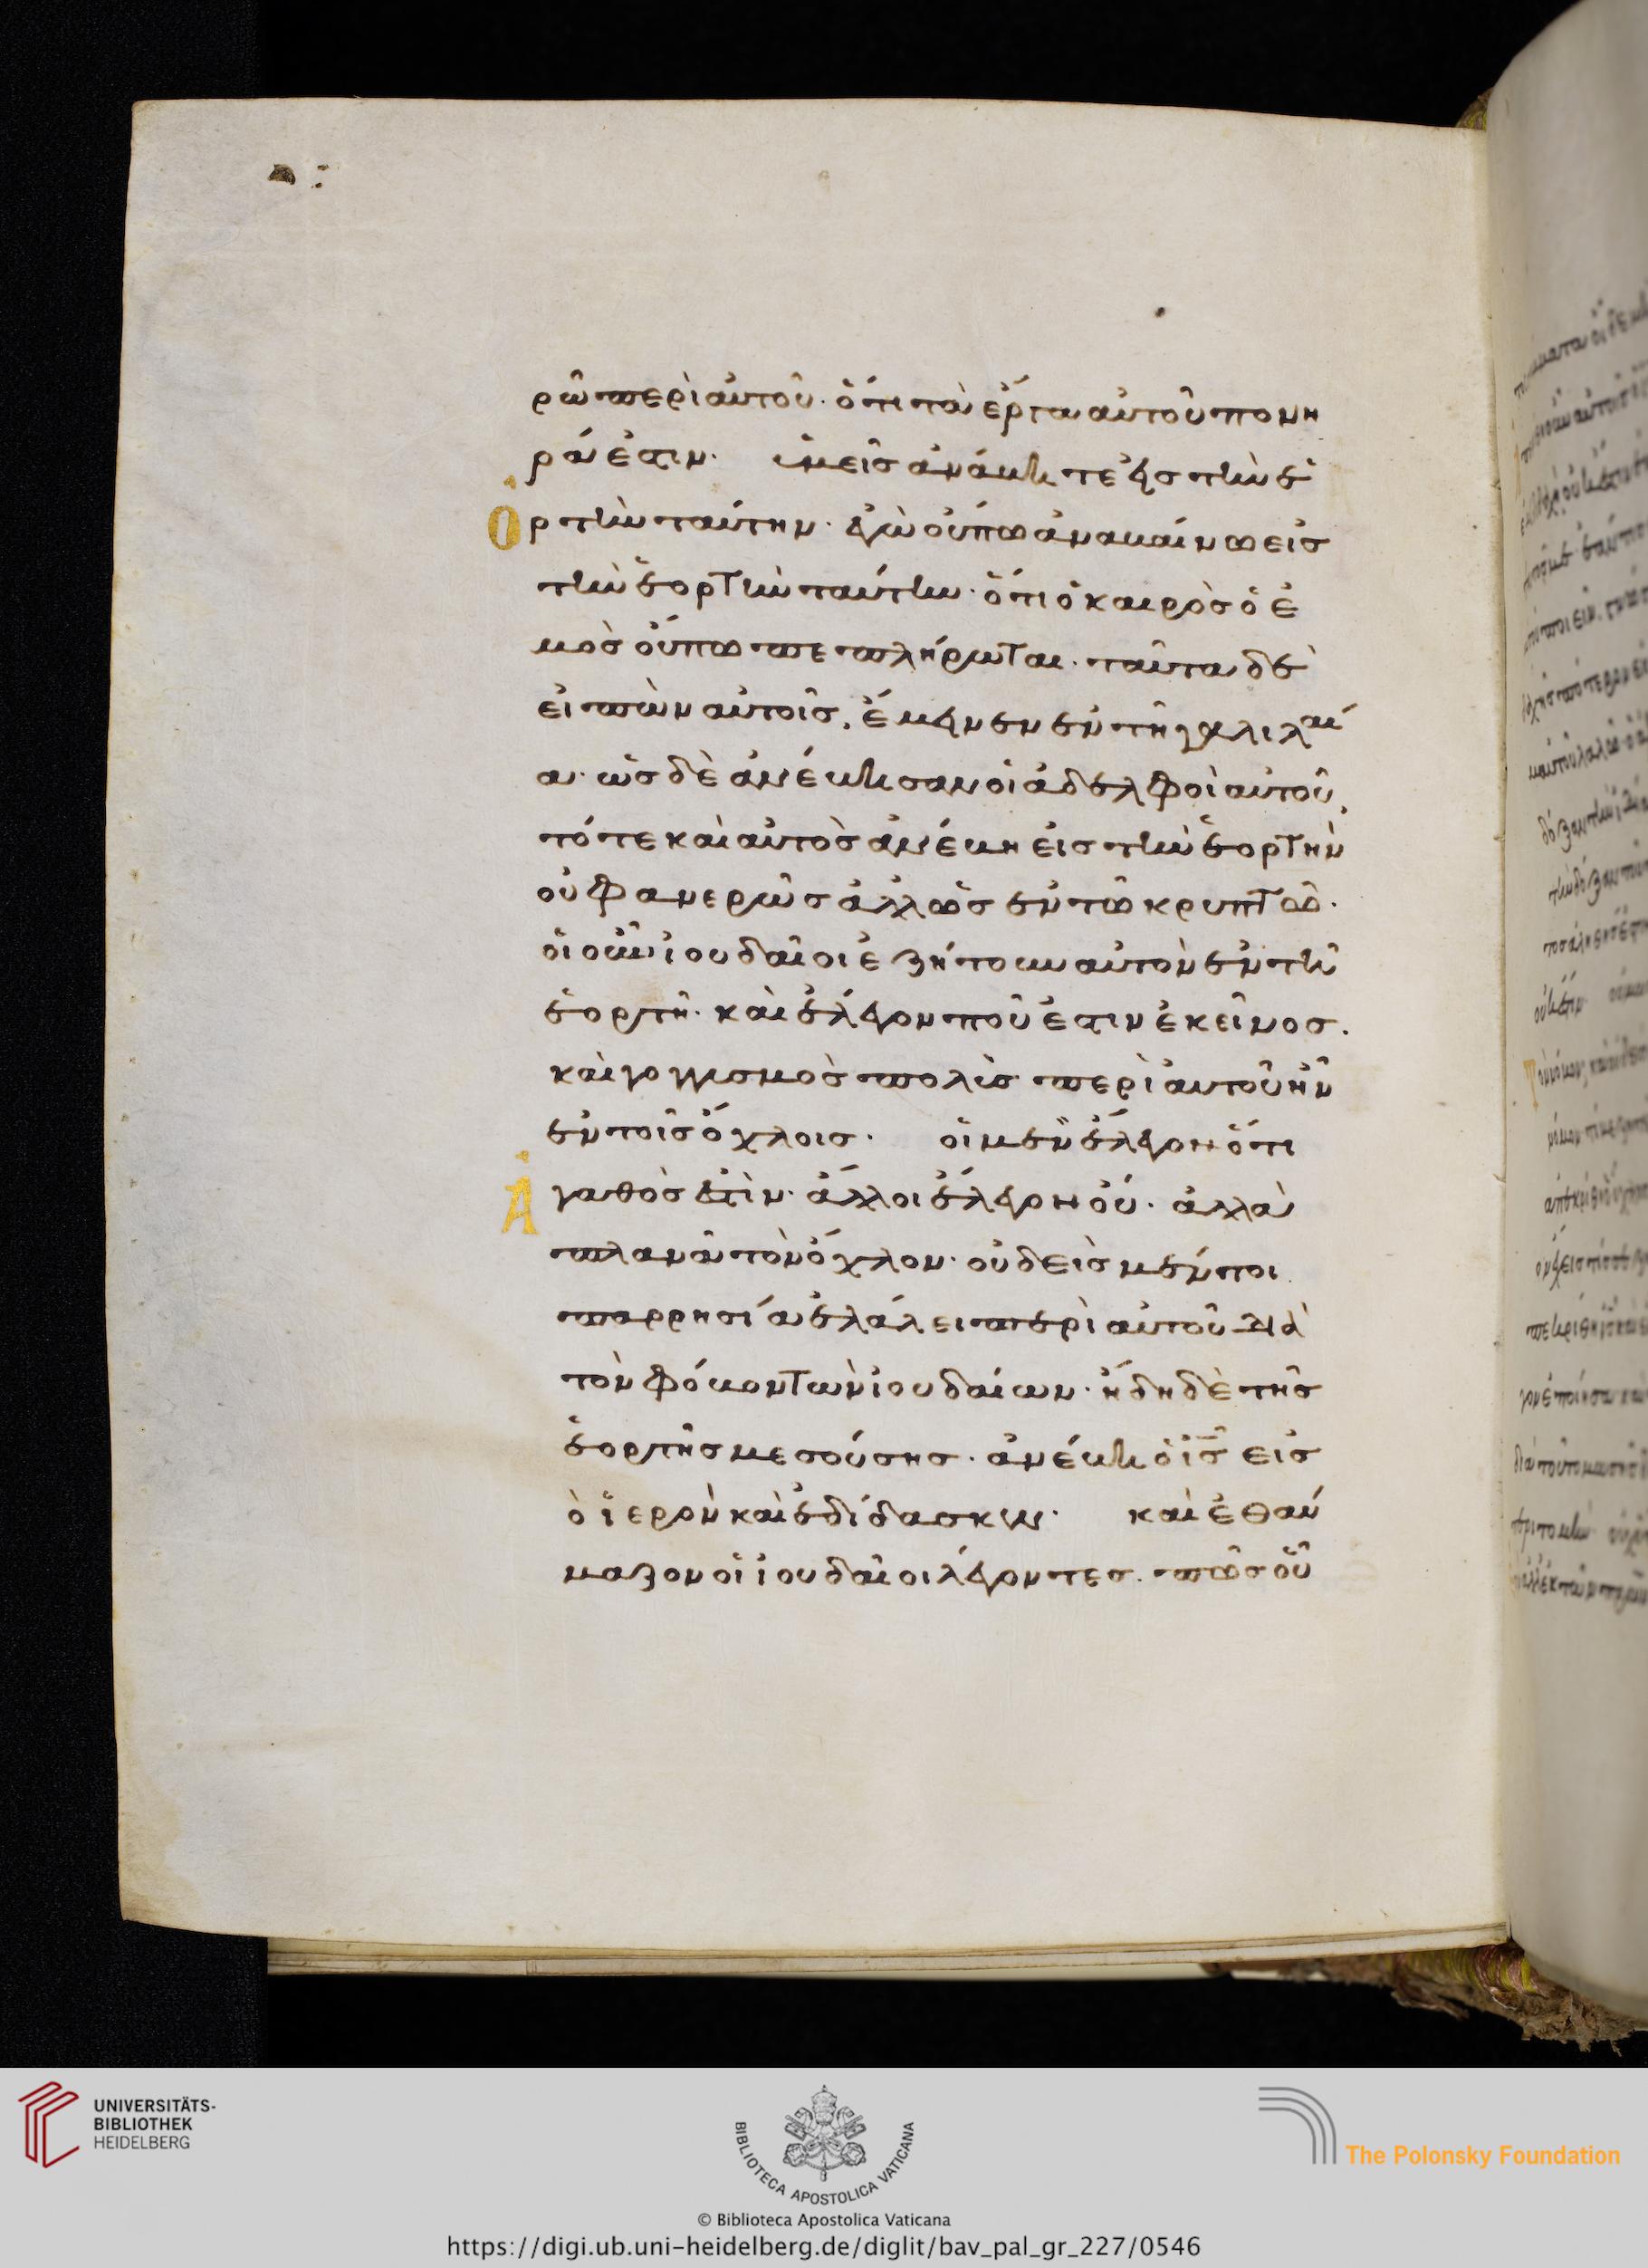 ρῶ περὶ αὐτοῦ· ὅτι τὰ ἔργα αὐτοῦ πονη
ρά ἐστιν· ὑμεῖς ἀνάβητε εἰς τὴν ἑ
Ορτὴν ταύτην· ἐγὼ οὔπω ἀναβαίνω εἰς
τὴν ἑορτὴν ταύτην· ὅτι ὁ καιρὸς ὁ ἐ
μὸς οὔπω πεπλήρωται· ταῦτα δὲ
εἰπὼν αὐτοῖς, ἔμεινεν ἐν τῆ γαλιλαί
α· ὡς δὲ ἀνέβησαν οἱ ἀδελφοὶ αὐτοῦ,
τότε καὶ αὐτὸς ἀνέβη εἰς τὴν ἑορτὴν
οὐ φανερῶς ἀλλ ὡς ἐν τῶ κρυπτῶ·
οἱ οὖν ἰουδαῖοι ἐζήτουν αὐτὸν ἐν τῆ
ἑορτῆ· καὶ ἔλεγον ποῦ ἐστιν ἐκεῖνος.
καὶ γογγυσμὸς πολὺς περὶ αὐτοῦ ἦν
ἐν τοῖς ὄχλοις· οἱ μὲν ἔλεγον ὅτι
Ἀγαθός ἐστὶν· ἄλλοι ἔλεγον οὔ· ἀλλὰ
πλανᾶ τὸν ὄχλον· οὐδεὶς μέντοι
παρρησία ἐλάλει περὶ αὐτοῦ διὰ
τὸν φόβον τῶν ἰουδαίων· ἤδη δὲ τῆς
ἑορτῆς μεσούσης· ἀνέβη ὁ ις εἰς
ὸ ἱερὸν καὶ ἐδίδασκεν· καὶ ἐθαύ
μαζον οἱ ἰουδαῖοι λέγοντες. πῶς οὗ
UNIVERSITÄTS-
BIBLIOTHEK
HEIDELBERG
BIBLIOTECA APOSTOLICA VATICANA
The Polonsky Foundation
© Biblioteca Apostolica Vaticana
https://digi.ub.uni-heidelberg.de/diglit/bav_pal_gr_227/0546